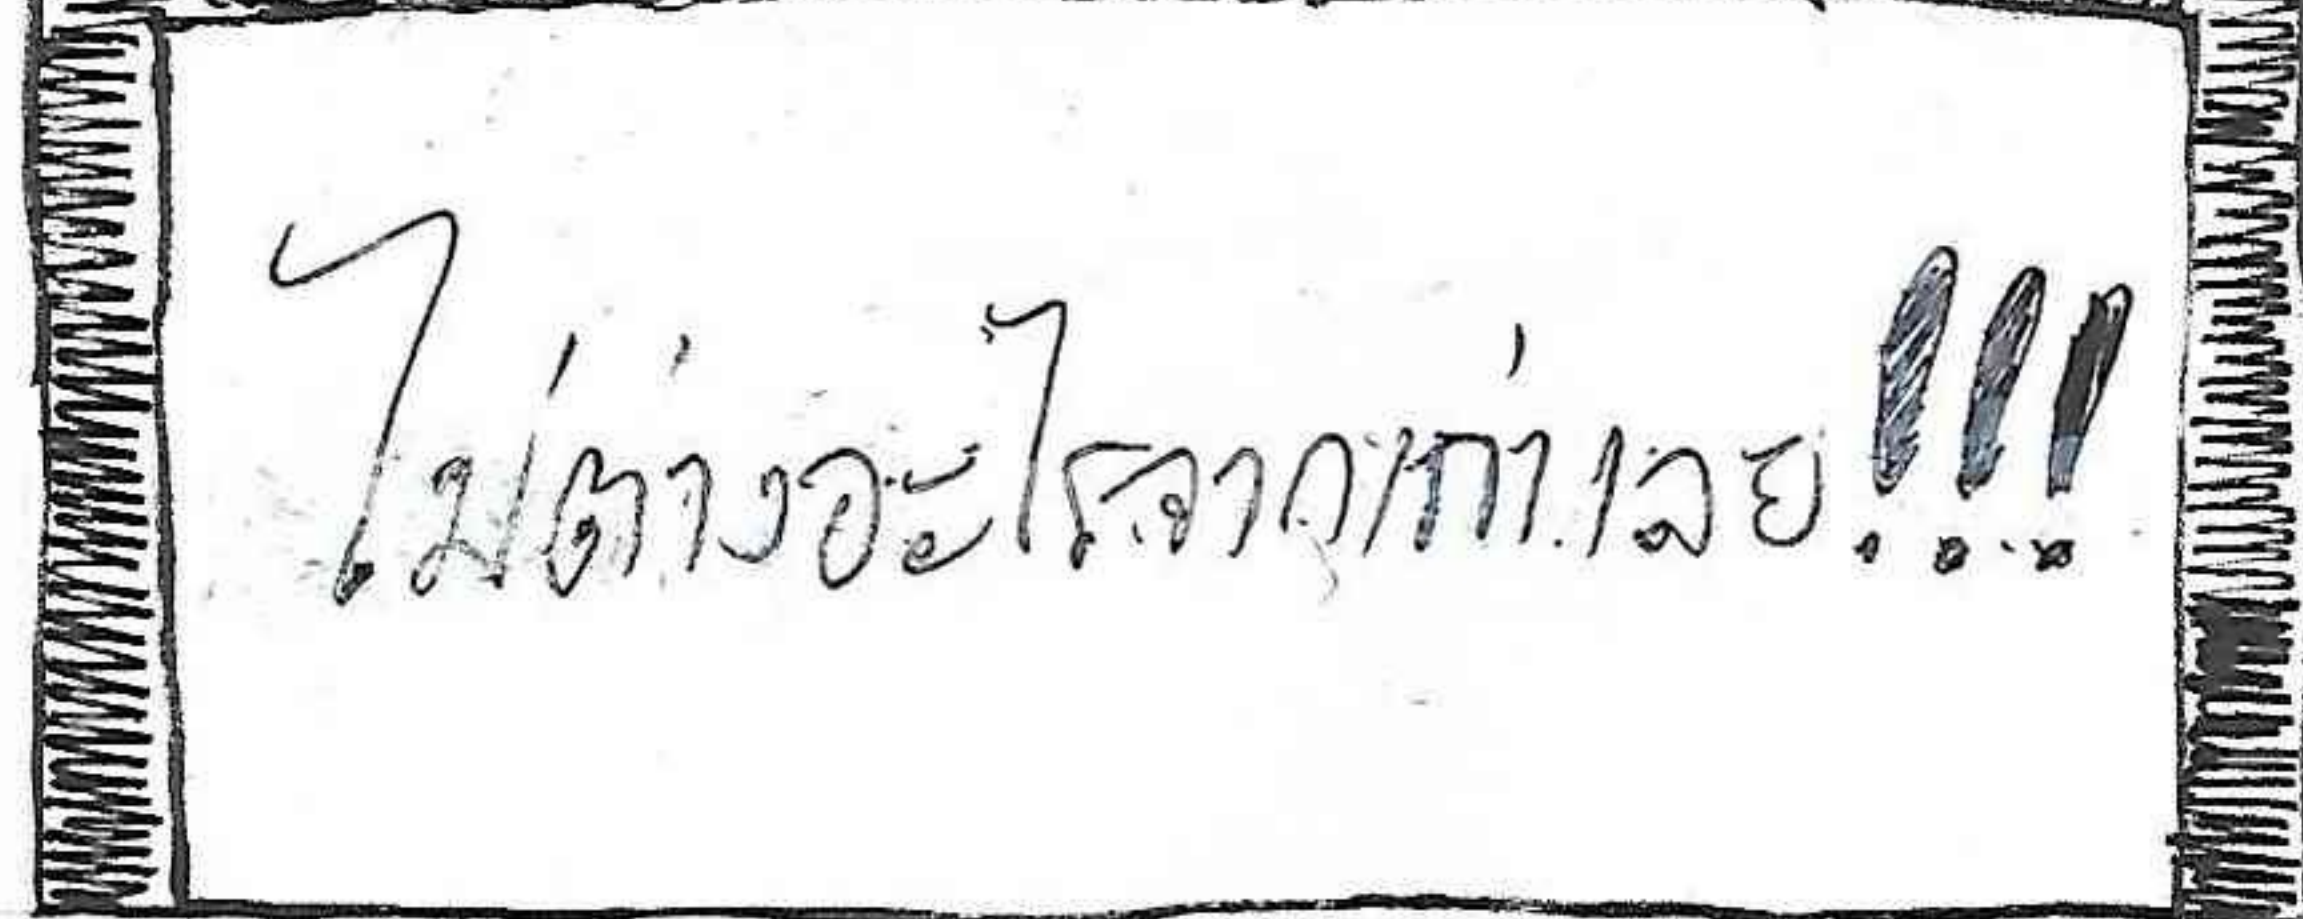 ไม่ต่างอะไรจากเก่าเลย!!!